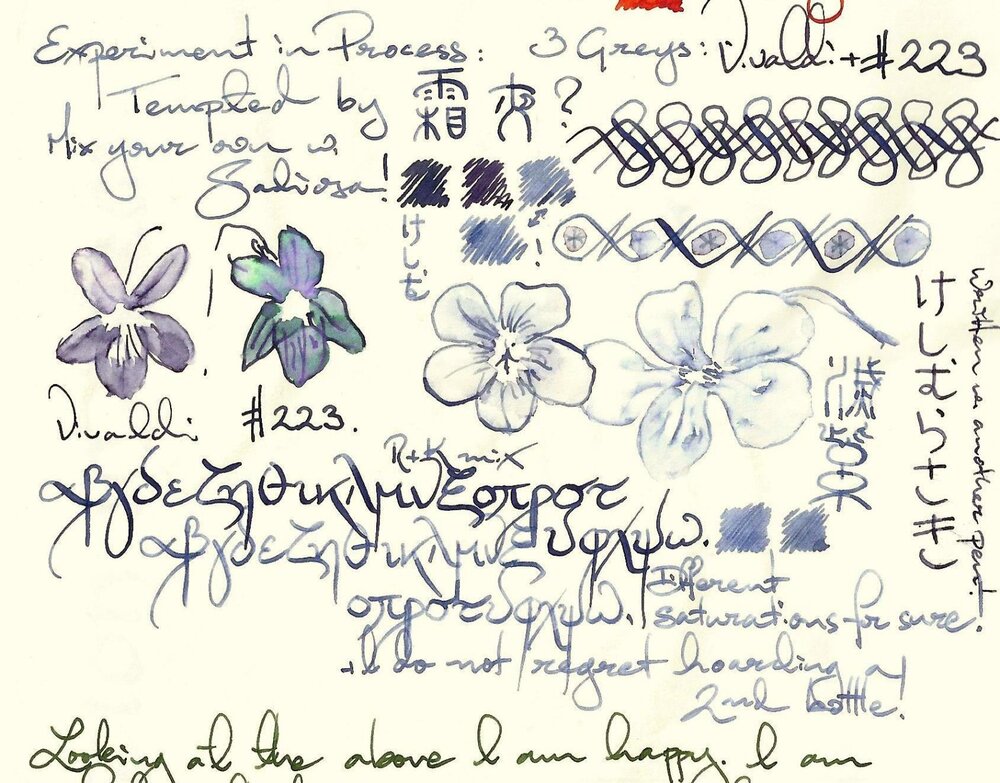 Experiment in Process:
3 Greys: Vivaldi + #223
Tempted by 霜夜?
Mix your own w.
!
けしむ
!
Written w. another pen!
けしむらさき
Vivaldi #223.
R+K mix
αβγδεζηθικλμνξοπροτ
υφχψω.
αβγδεζηθικλμνξ
οπροτυφχψω.
Different
saturations for sure.
+ I do not regret hoarding a
2nd bottle!
Looking at the above I am happy. I am